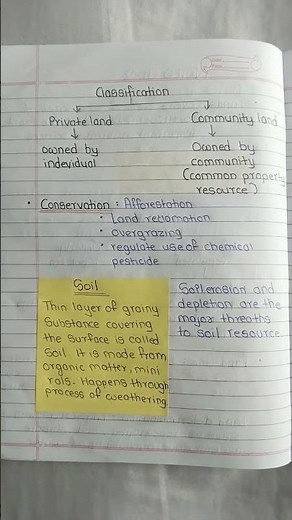 Classification
Private land
Community land
↓
↓
owned by
indevidual
Owned by
community
(common property
resource)
• Conservation : Afforestation
• Land reclamation
• overgrazing
• regulate use of chemical
pesticide
Soil
Thin layer of grainy
Substance covering
the surface is called
Soil. It is made from
organic matter, mini
rals. Happens through
process of weathering
Soil erosion and
depletion are the
major threaths
to soil resource